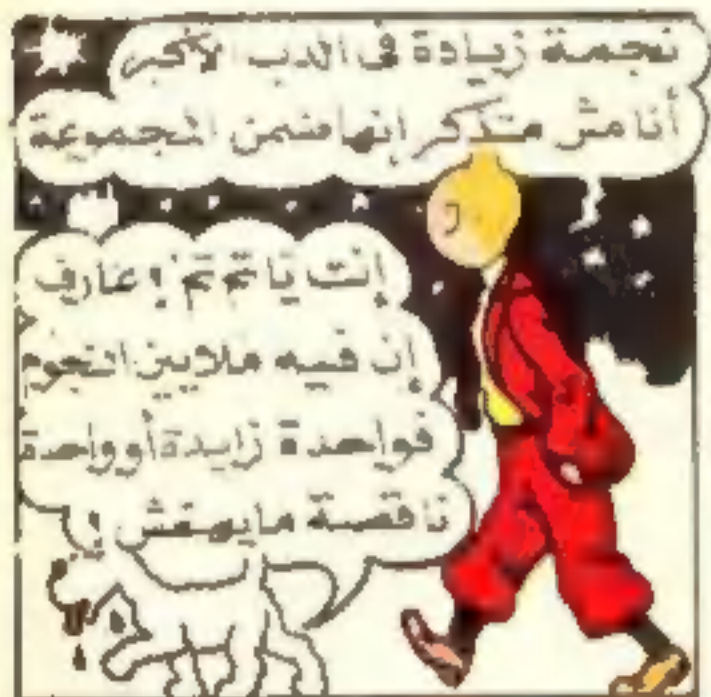 نجمة زيادة فى الدب الأكبر
أنا مش متذكر إنها ضمن المجموعة
إنت يا تم تم ! عارف
إن فيه ملايين النجوم
فواحدة زايدة أو واحدة
ناقصة ما يهمش !